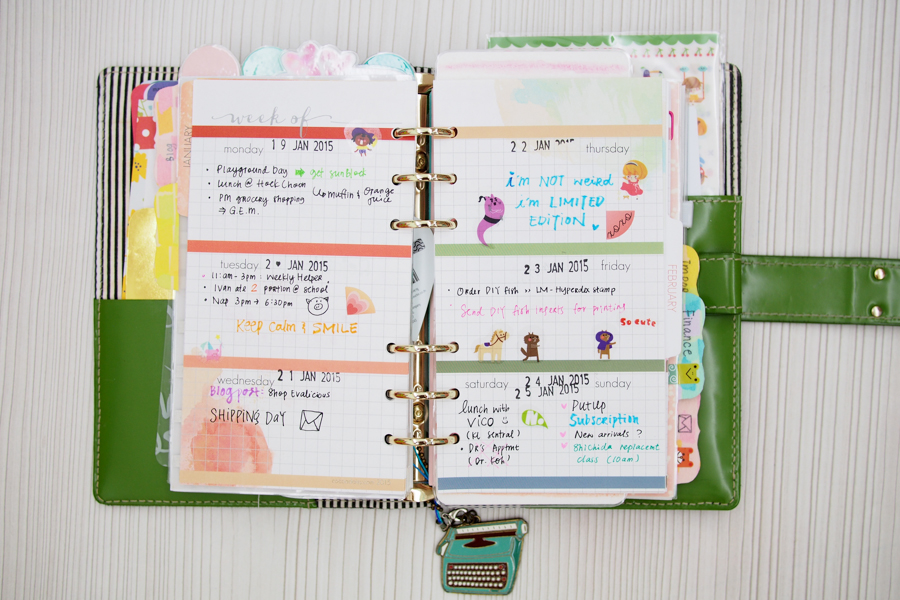 week of
JANUARY
monday 19 JAN 2015
• Playground Day ➡ get sunblock
• Lunch @ Hack Choon
↳ muffin & Orange juice
• PM grocery shopping
⇒ G.E.M.
tuesday 2♥ JAN 2015
• 11:am - 3pm : Weekly Helper
• Ivan ate 2 portion @ school
• Nap 3pm → 6:30pm
KEEP CALM & SMILE
wednesday 21 JAN 2015
Blog post: Shop Evalicious
SHIPPING DAY
22 JAN 2015 thursday
i'm NOT weird
i'm LIMITED
EDITION
xoxo
23 JAN 2015 friday
• Order DIY fish >> LM-Hyperdox stamp
Send DIY fish inserts for printing
so cute
saturday 24 JAN 2015 sunday
25 JAN 2015
Lunch with
VICO
(KL Sentral)
• DR's Apptmt
(Dr. Koh)
Put Up
Subscription
New arrivals ?
Bhichida replacent
class (10am)
FEBRUARY
Finance